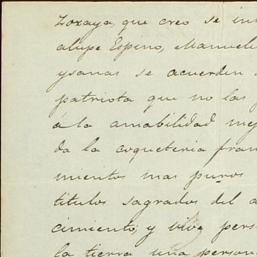 Zozaya, que creo se in
alupe Espino, Manuel
ysanas se acuerden
patriota que no las
á la amabilidad me
da la coquetería fran
mientos mas puros
titulos sagrados del a
cimiento, y
la tierra una person